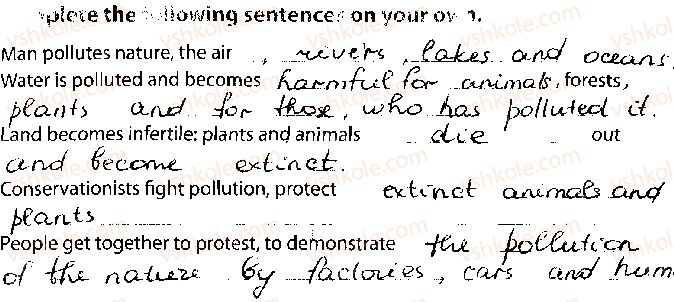 the following sentences on your own.
Man pollutes nature, the air, rivers, lakes and oceans,
Water is polluted and becomes harmful for animals, forests,
plants and for those, who has polluted it.
Land becomes infertile: plants and animals die out
and become extinct.
Conservationists fight pollution, protect extinct animals and
plants
People get together to protest, to demonstrate the pollution
of the nature by factories, cars and hum